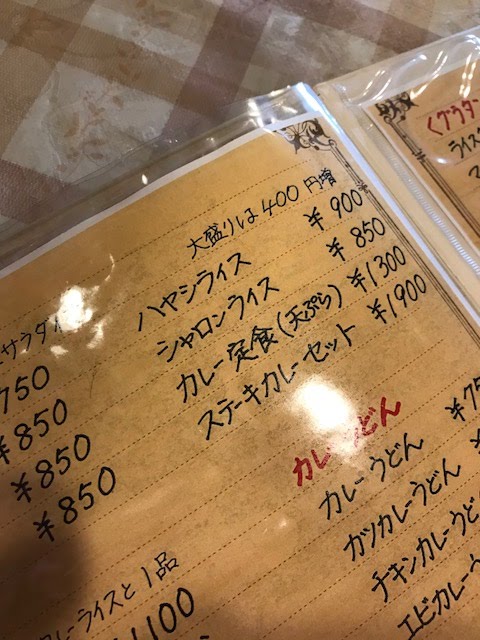 大盛りは400円増
ハヤシライス ¥900
シャロンライス ¥850
カレー定食(天ぷら) ¥1300
ステーキカレーセット ¥1900
カレーうどん
カレーうどん
カツカレーうどん
チキンカレーうど
エビカレー
サラダ
750
¥850
¥850
¥850
ライスと1品
1100
ライス